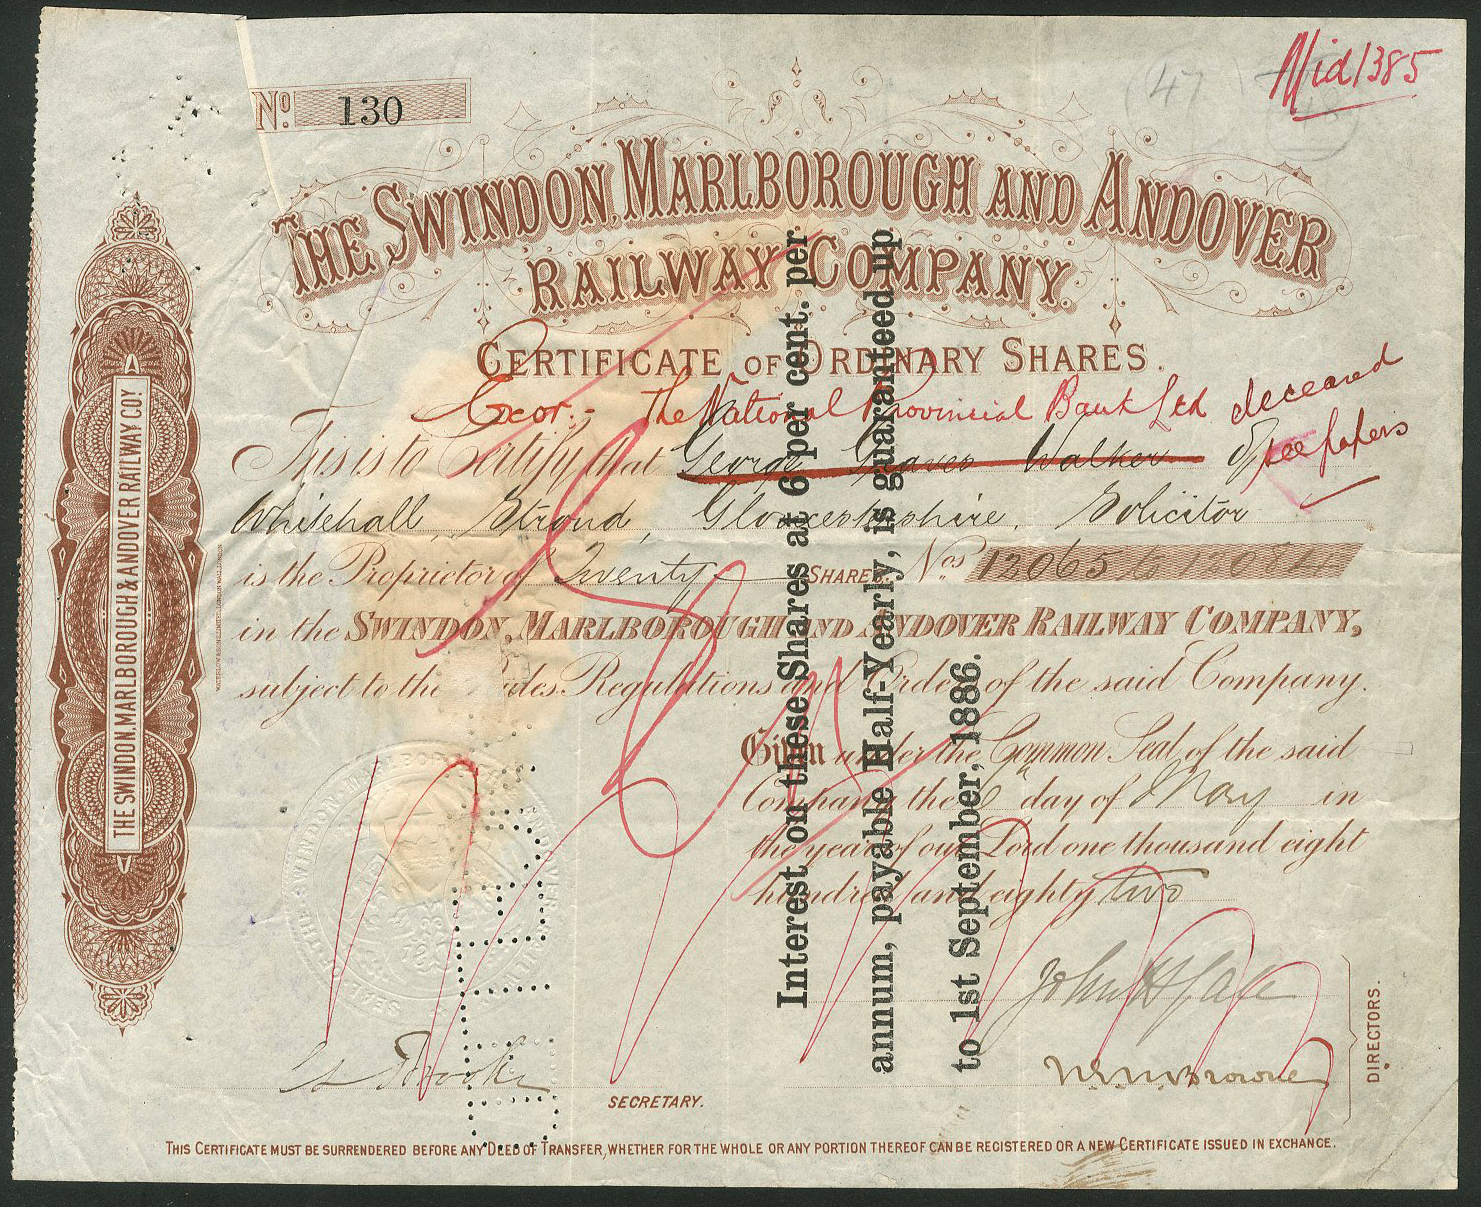 Mid 1385
(47)
48
No. 130
THE SWINDON, MARLBOROUGH AND ANDOVER
RAILWAY COMPANY.
CERTIFICATE OF ORDINARY SHARES.
Exor:- The National Provincial Bank Ltd deceased
This is to Certify that George Graves Walker of see papers
Whitehall, Stroud, Gloucestershire, Solicitor
is the Proprietor of Twenty SHARES. Nos 12065
in the SWINDON, MARLBOROUGH AND ANDOVER RAILWAY COMPANY,
subject to the Rules, Regulations and Orders of the said Company.
Given under the Common Seal of the said
Company the 6th day of May in
the year of our Lord one thousand eight
hundred and eighty two
John H Gale
DIRECTORS.
SECRETARY.
THIS CERTIFICATE MUST BE SURRENDERED BEFORE ANY DEED OF TRANSFER, WHETHER FOR THE WHOLE OR ANY PORTION THEREOF CAN BE REGISTERED OR A NEW CERTIFICATE ISSUED IN EXCHANGE.
THE SWINDON, MARLBOROUGH & ANDOVER RAILWAY COY.
Interest on these Shares at 6 per cent. per
annum, payable Half-Yearly, is guaranteed up
to 1st September, 1886.